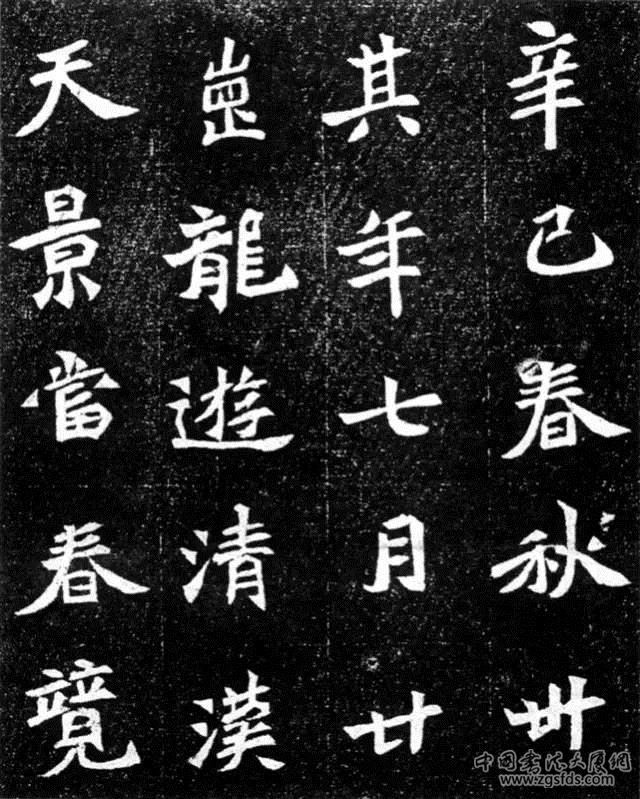 辛巳春秋卌
其年七月廿
龍遊清漢
天景當春競
中国書法大展網
www.zgsfds.com